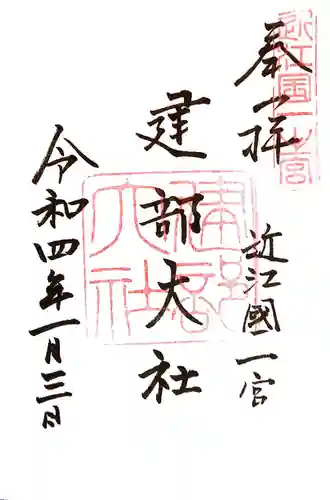 奉拝
近江國一宮
建部大社
令和四年一月三日
近江國一之宮
建部大社